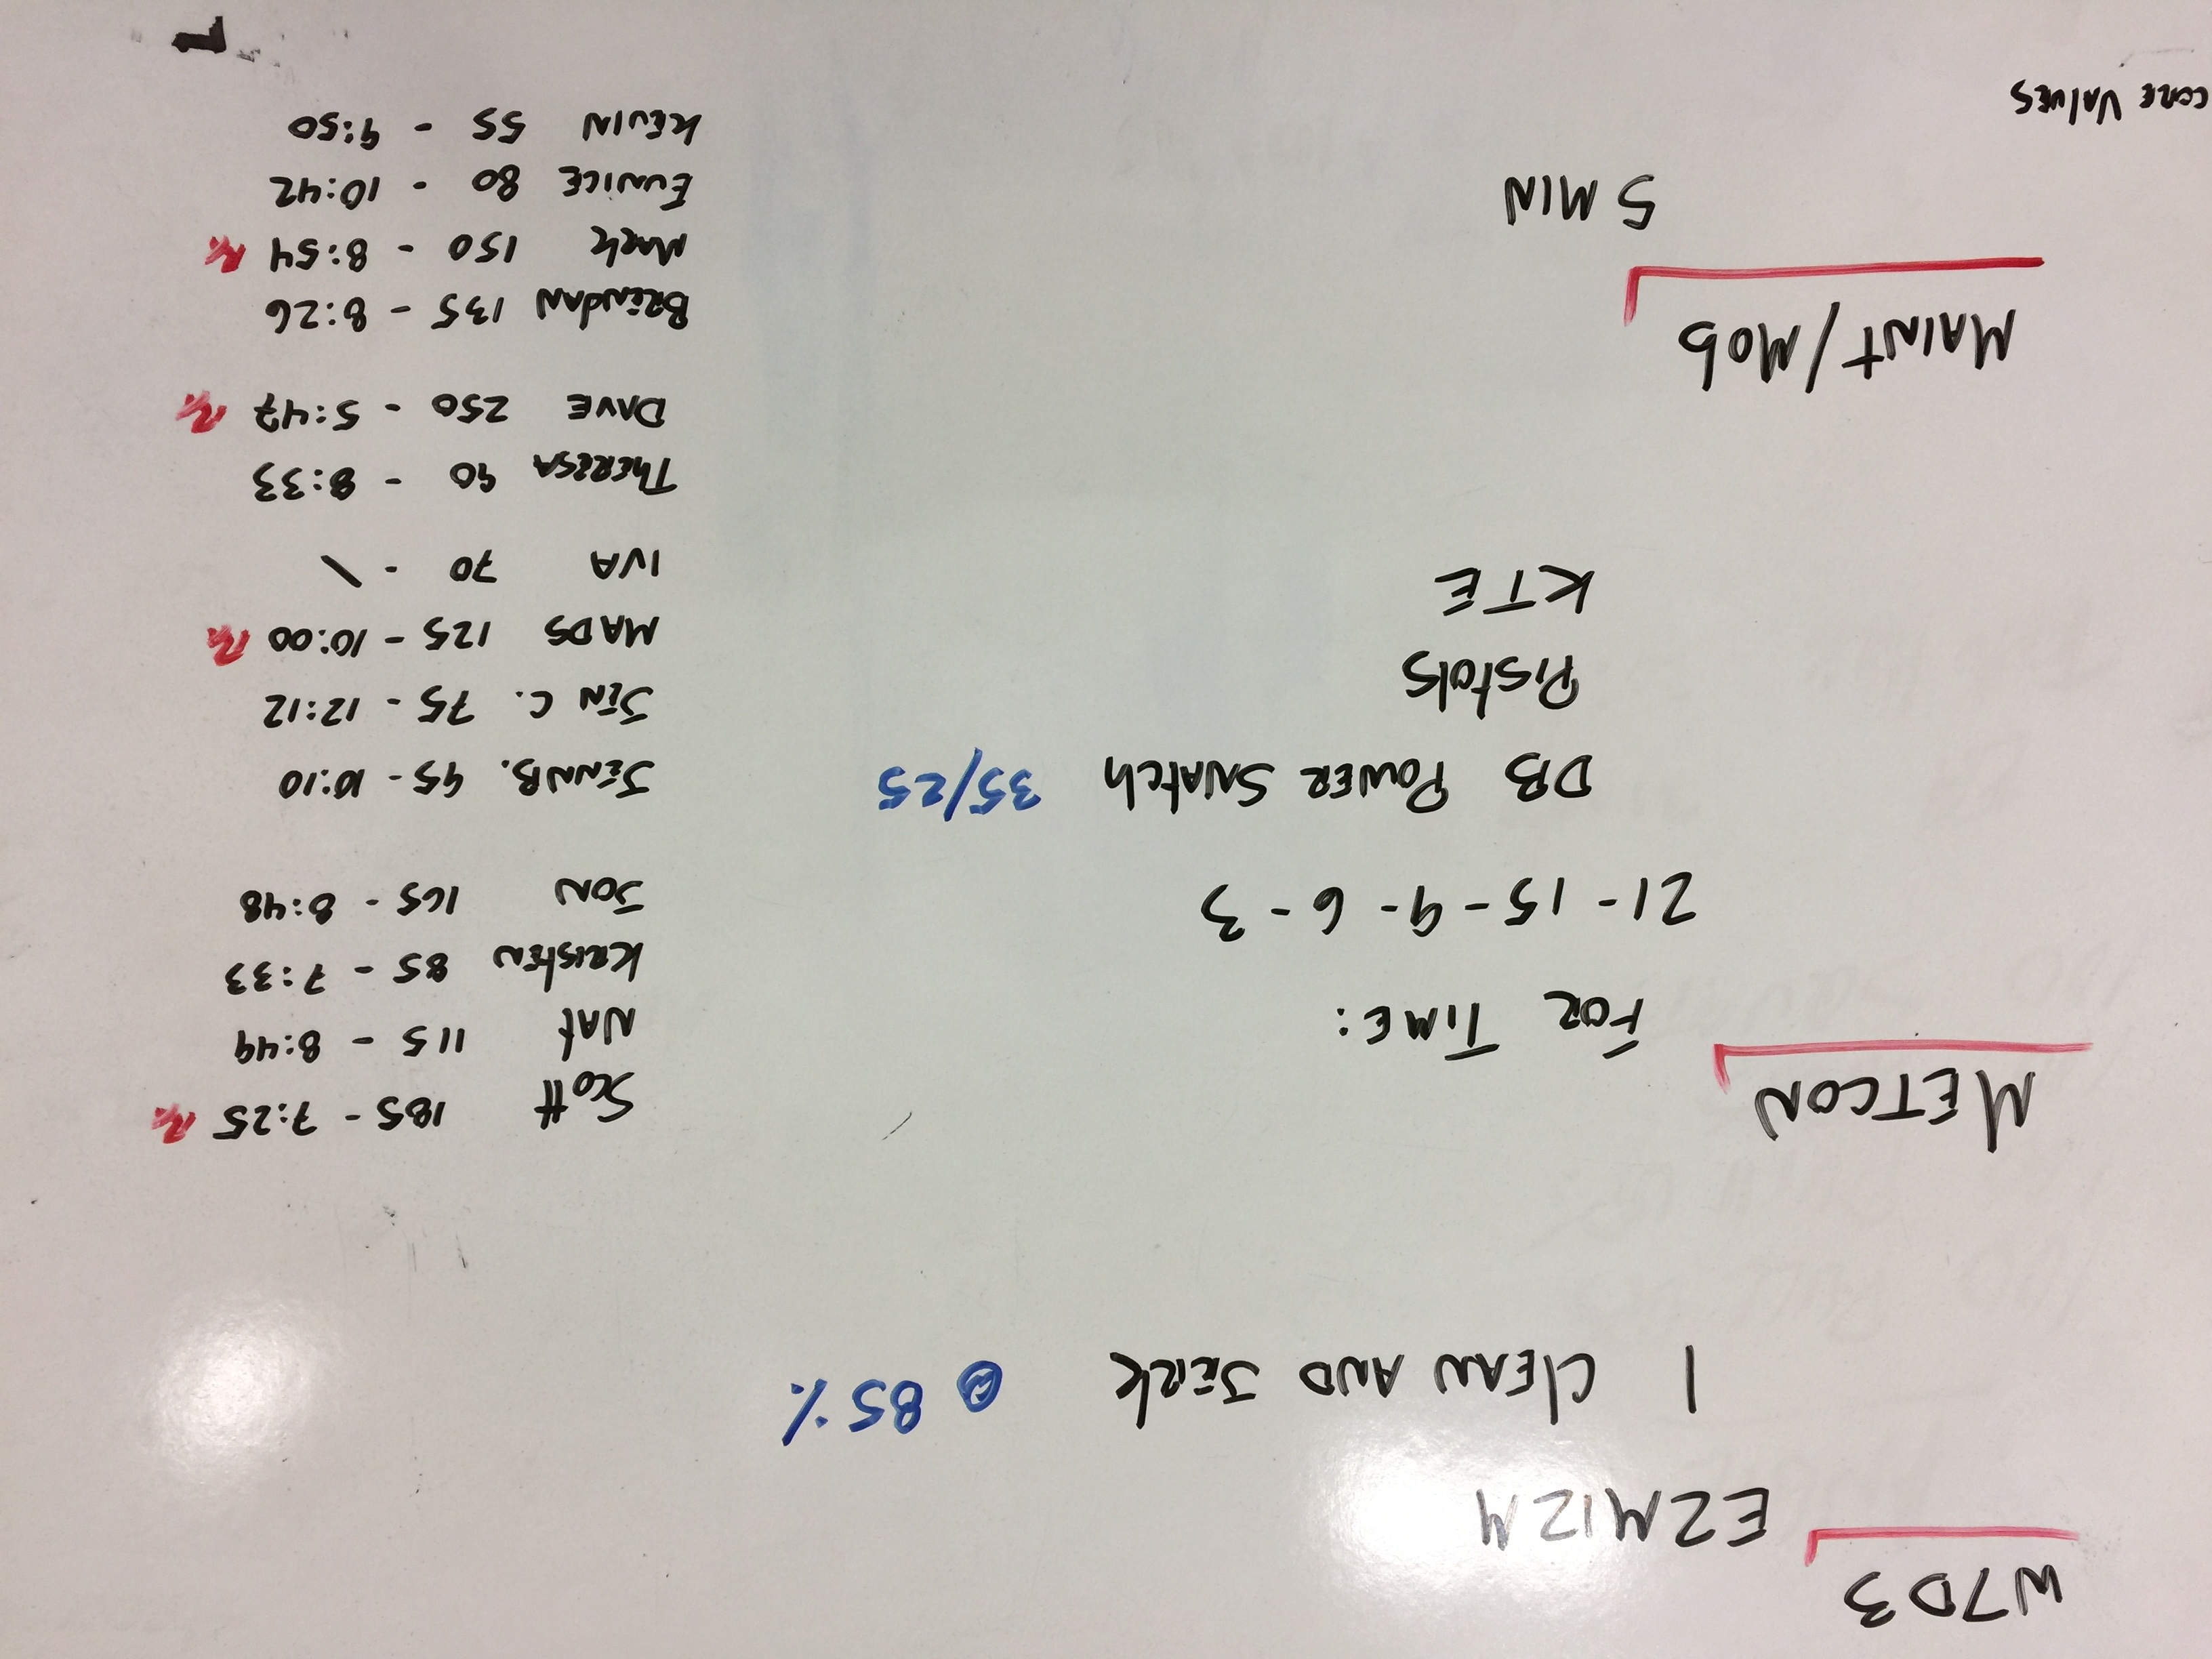 W7D3
E2M12M
1 Clean and Jerk @ 85%
Metcon
For Time:
21-15-9-6-3
DB Power Snatch 35/25
Pistols
KTE
Maint/Mob
5 min
Core Values
Scott 185 - 7:25 Rx
Nat 115 - 8:49
Kristen 85 - 7:33
Jon 165 - 8:48
Jenn B. 95 - 10:10
Jen C. 75 - 12:12
Mads 125 - 10:00 Rx
Iva 70 - \
Theresa 90 - 8:33
Dave 250 - 5:47 Rx
Brendan 135 - 8:26
Mark 150 - 8:54 Rx
Eunice 80 - 10:42
Kevin 55 - 9:50